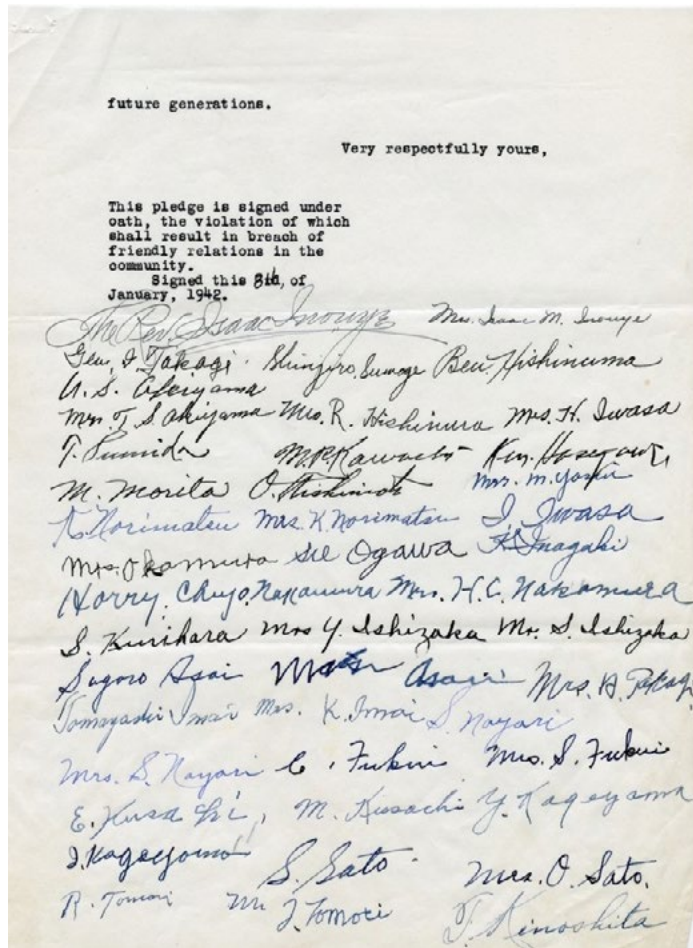 future generations.
Very respectfully yours,
This pledge is signed under
oath, the violation of which
shall result in breach of
friendly relations in the
community.
Signed this 8th, of
January, 1942.
The Rev. Isaac Inouye Mrs. Isaac M. Inouye
Geo. I. Takagi Shinjiro Sumoge Ben Hishinuma
U. S. Akiyama
Mrs. T. S. Akiyama Mrs. R. Hishinuma Mrs. H. Iwasa
T. Sumida M. R. Kawachi Ken Hasegawa
M. Morita O. Nishimoto Mrs. M. Yoshii
K. Norimatsu Mrs. K. Norimatsu I. Iwasa
Mrs. Okamura Sue Ogawa K. Inagaki
Harry Chujo Nakamura Mrs. H. C. Nakamura
S. Kurihara Mrs Y. Ishizaka Mr. S. Ishizaka
Sugoro Asai Asai Mrs. A. Takagi
Imai Mrs. K. Imai S. Nayori
Mrs. S. Nayori C. Fukui Mrs. S. Fukui
E. Kusachi, M. Kusachi Y. Kageyama
I. Kageyama
S. Sato Mrs. O. Sato.
R. Tomori J. Tomori T. Kinoshita